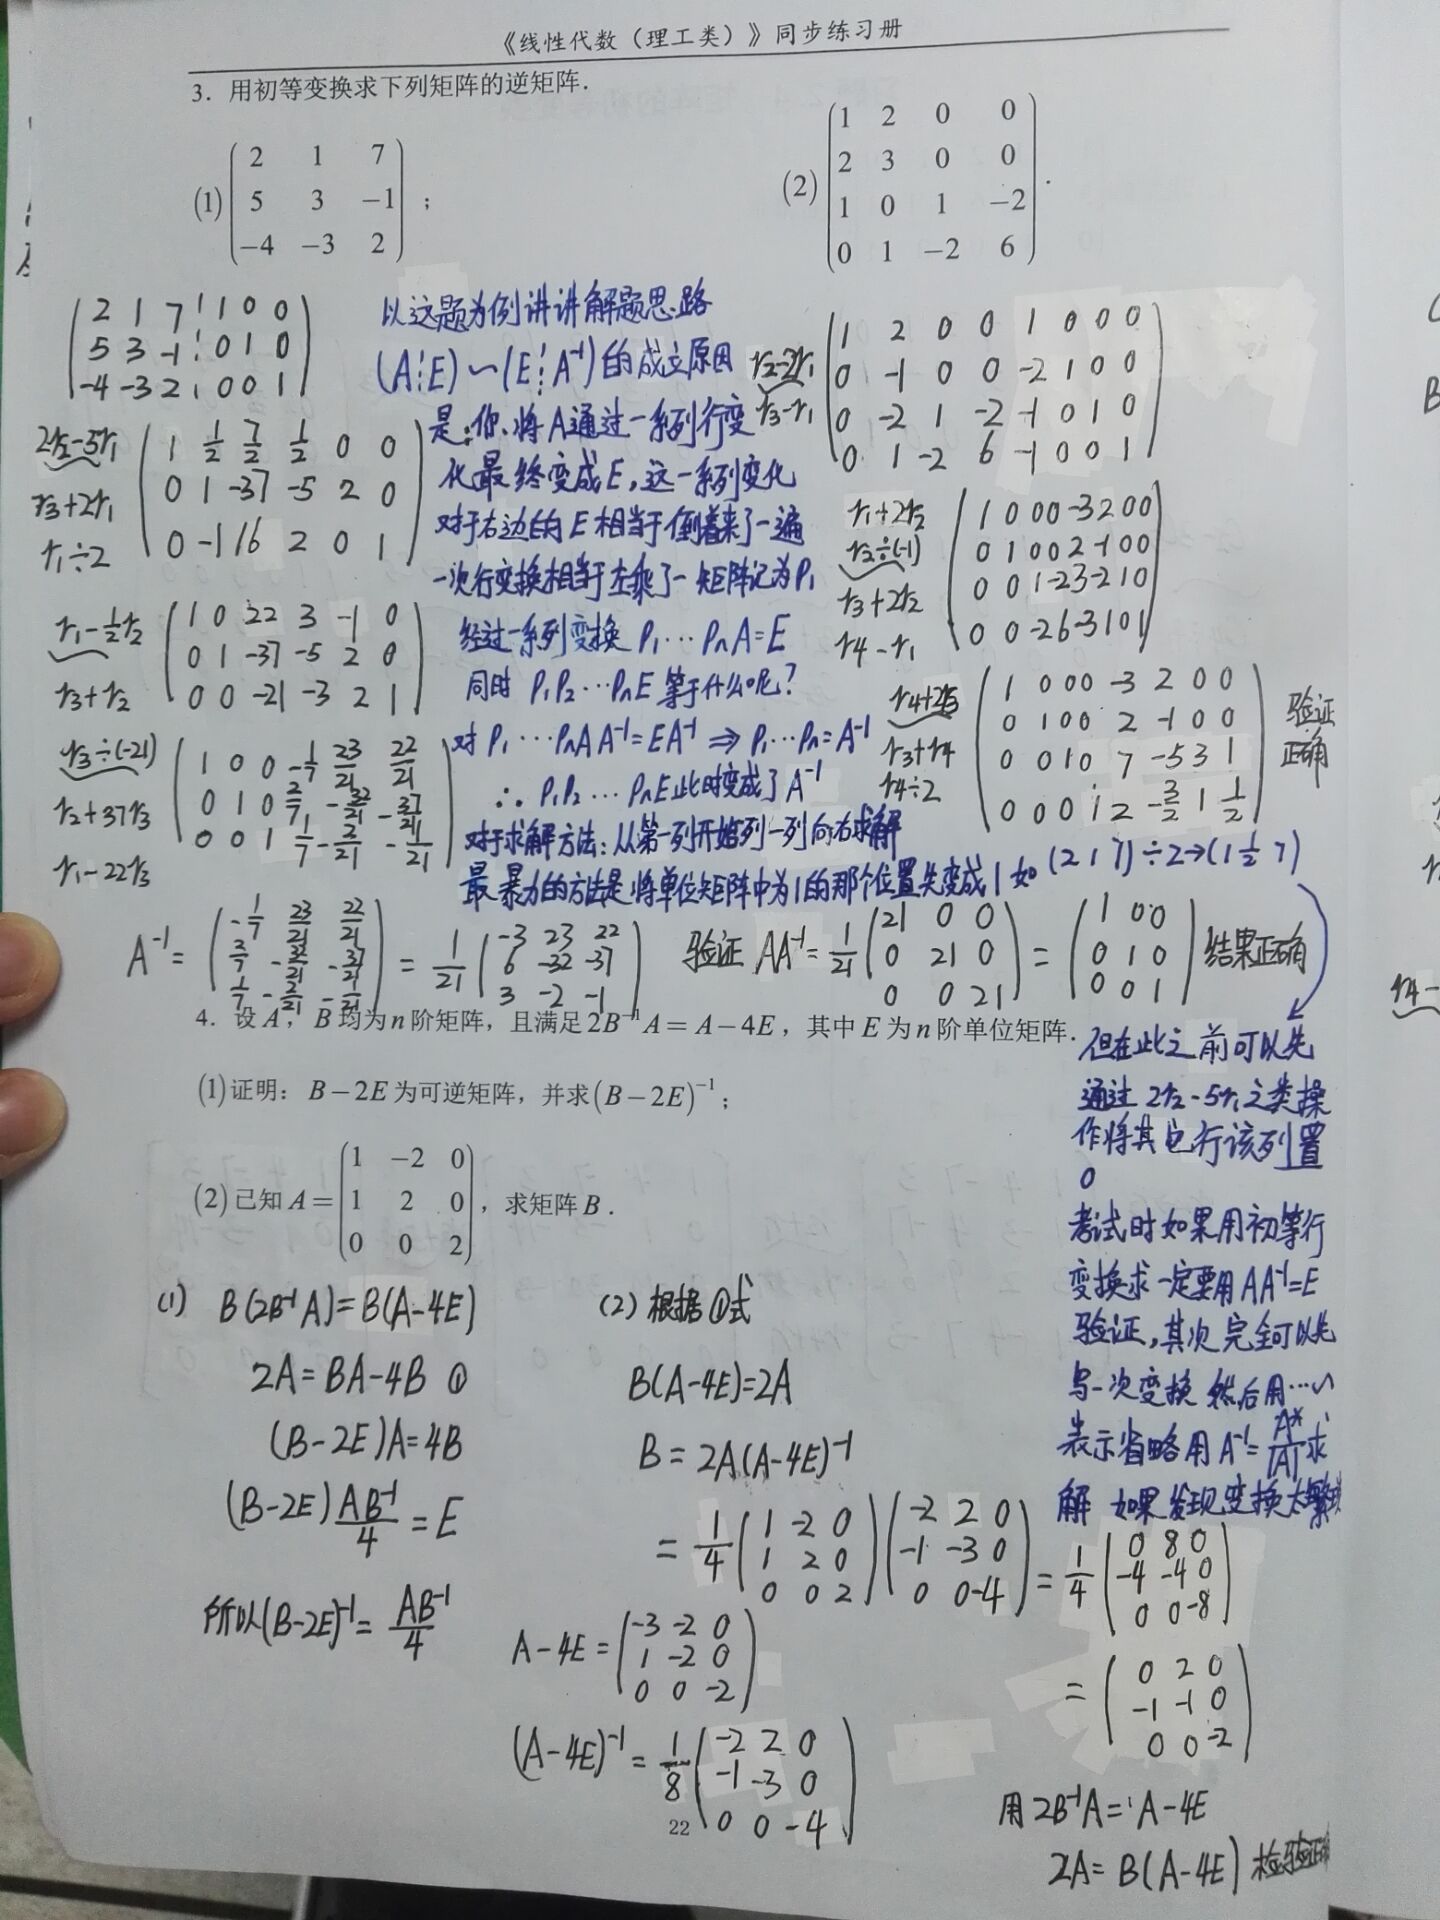 《线性代数（理工类）》同步练习册
3. 用初等变换求下列矩阵的逆矩阵.
(1)
2 1 7
5 3 −1
−4 −3 2
;
(2)
1 2 0 0
2 3 0 0
1 0 1 −2
0 1 −2 6
.
2 1 7 1 0 0
5 3 -1 0 1 0
-4 -3 2 0 0 1
2r2-5r1
r3+2r1
r1÷2
1 1/2 7/2 1/2 0 0
0 1 -37 -5 2 0
0 -1 16 2 0 1
r1-1/2r2
r3+r2
1 0 22 3 -1 0
0 1 -37 -5 2 0
0 0 -21 -3 2 1
r3÷(-21)
r2+37r3
r1-22r3
1 0 0 -1/7 23/21 22/21
0 1 0 2/7 -32/21 -37/21
0 0 1 1/7 -2/21 -1/21
以这题为例讲讲解题思路
(A⋮E)∽(E⋮A⁻¹)的成立原因
是:你、将A通过一系列行变
化最终变成E,这一系列变化
对于右边的E相当于倒着来了一遍
一次行变换相当于左乘了一矩阵记为P₁
经过一系列变换 P₁…PnA=E
同时 P₁P₂…PnE等于什么呢?
对 P₁…PnAA⁻¹=EA⁻¹ ⇒ P₁…Pn=A⁻¹
∴ P₁P₂…PnE此时变成了A⁻¹
对于求解方法:从第一列开始列一列向右求解
最暴力的方法是将单位矩阵中为1的那个位置先变成1 如(2 1 7)÷2→(1 1/2 7)
r2-2r1
r3-r1
1 2 0 0 1 0 0 0
0 -1 0 0 -2 1 0 0
0 -2 1 -2 -1 0 1 0
0 1 -2 6 -1 0 0 1
r1+2r2
r2÷(-1)
r3+2r2
r4-r1
1 0 0 0 -3 2 0 0
0 1 0 0 2 -1 0 0
0 0 1 -2 3 -2 1 0
0 0 -2 6 -3 1 0 1
r4+2r3
r3+r4
r4÷2
1 0 0 0 -3 2 0 0
0 1 0 0 2 -1 0 0
0 0 1 0 7 -5 3 1
0 0 0 1 2 -3/2 1 1/2
验证
正确
A⁻¹=
-1/7 23/21 22/21
2/7 -32/21 -37/21
1/7 -2/21 -1/21
= 1/21
-3 23 22
6 -32 -37
3 -2 -1
验证 AA⁻¹= 1/21
21 0 0
0 21 0
0 0 21
=
1 0 0
0 1 0
0 0 1
结果正确
4. 设A，B均为n阶矩阵，且满足2B⁻¹A=A−4E，其中E为n阶单位矩阵.
(1)证明：B−2E为可逆矩阵，并求(B−2E)⁻¹；
(2)已知A=
1 −2 0
1 2 0
0 0 2
，求矩阵B.
但在此之前可以先
通过 2r2-5r1之类操
作将其他行该列置
0
考试时如果用初等行
变换求一定要用AA⁻¹=E
验证,其次完全可以先
写一次变换 然后用…∽
表示省略用A⁻¹=A*/|A|求
解 如果发现变换太繁
(1) B(2B⁻¹A)=B(A-4E)
2A=BA-4B ①
(B-2E)A=4B
(B-2E)AB⁻¹/4=E
所以(B-2E)⁻¹=AB⁻¹/4
(2) 根据①式
B(A-4E)=2A
B=2A(A-4E)⁻¹
= 1/4
1 -2 0
1 2 0
0 0 2
-2 2 0
-1 -3 0
0 0 -4
= 1/4
0 8 0
-4 -4 0
0 0 -8
=
0 2 0
-1 -1 0
0 0 -2
A-4E=
-3 -2 0
1 -2 0
0 0 -2
(A-4E)⁻¹= 1/8
-2 2 0
-1 -3 0
0 0 -4
用 2B⁻¹A=A-4E
2A=B(A-4E) 检验正确
22